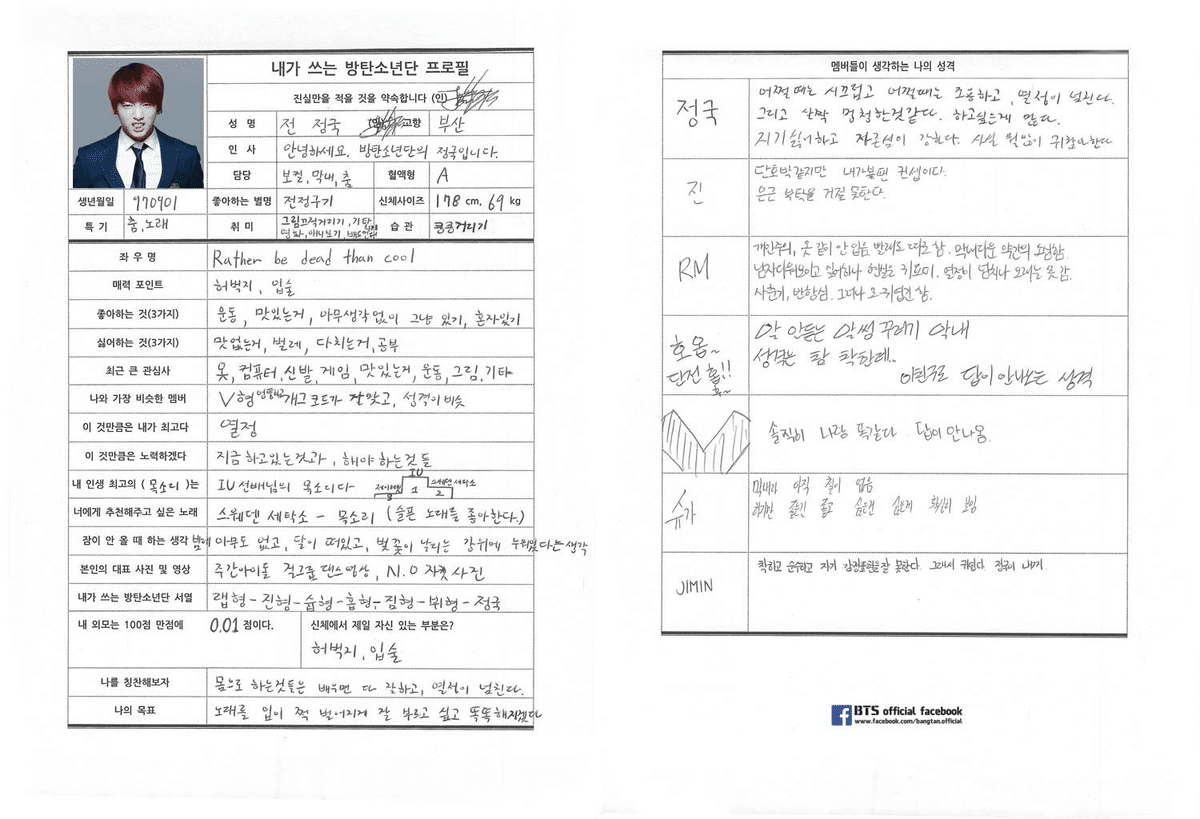 내가 쓰는 방탄소년단 프로필
진실만을 적을 것을 약속합니다 (인)
성 명 전 정국 고향 부산
인 사 안녕하세요. 방탄소년단의 정국입니다.
담당 보컬, 막내, 춤 혈액형 A
생년월일 970901 좋아하는 별명 전정구기 신체사이즈 178 cm, 69 kg
특 기 춤, 노래 취 미 그림끄적거리기, 기타 영화, 애니보기, 습 관 킁킁거리기
좌 우 명 Rather be dead than cool
매력 포인트 허벅지, 입술
좋아하는 것(3가지) 운동, 맛있는거, 아무생각없이 그냥 있기, 혼자있기
싫어하는 것(3가지) 맛없는거, 벌레, 다치는거, 공부
최근 큰 관심사 옷, 컴퓨터, 신발, 게임, 맛있는거, 운동, 그림, 기타
나와 가장 비슷한 멤버 V형 개그 코드가 잘맞고, 성격이 비슷
이 것만큼은 내가 최고다 열정
이 것만큼은 노력하겠다 지금 하고있는것과, 해야 하는것 들
내 인생 최고의 ( 목소리 )는 IU선배님의 목소리다 3 IU 1 스웨덴 세탁소 2
너에게 추천해주고 싶은 노래 스웨덴 세탁소 - 목소리 (슬픈 노래를 좋아한다.)
잠이 안 올 때 하는 생각 밤에 아무도 없고, 달이 떠있고, 벚꽃이 날리는 강위에 누워있다는 생각
본인의 대표 사진 및 영상 주간아이돌 걸그룹댄스영상, N.O 자켓 사진
내가 쓰는 방탄소년단 서열 랩형-진형-슙형-홉형-짐형-뷔형-정국
내 외모는 100점 만점에 0.01 점이다. 신체에서 제일 자신 있는 부분은?
허벅지, 입술
나를 칭찬해보자 몸으로 하는것들은 배우면 다 잘하고, 열정이 넘친다.
나의 목표 노래를 입이 쩍 벌어지게 잘 부르고 싶고 똑똑해지겠다
멤버들이 생각하는 나의 성격
정국 어쩔때는 시끄럽고 어쩔때는 조용하고, 열정이 넘친다.
그리고 살짝 멍청한것같다. 하고싶은게 많다.
지기싫어하고 자존심이 강하다. 사실 귀찮아한다
진 단호박같지만 내가볼땐 컨셉이다.
은근 부탁을 거절 못한다.
RM 개인주의, 옷 같이 안 입음 빨래도 따로 함. 막내다운 약간의 소심함.
남자다워보이고 싶어하나 현실은 귀요미. 열정이 넘치나 오래는 못 감.
사춘기, 반항심.
호옵~ 말 안듣는 말썽꾸러기 막내
단전 홉!! 성격은 참 착한데..
홉~ 이친구도 답이 안나오는 성격
솔직히 나랑 똑같다. 답이 안나옴.
슈가 막내라 아직 철이 없음
하지만 좋은건 좋고 싫은건 싫은게 확실히 보임
JIMIN 착하고 순수하고 자기 감정표현을잘 못한다. 그래서 귀엽다. 정국이 내꺼.
BTS official facebook
www.facebook.com/bangtan.official